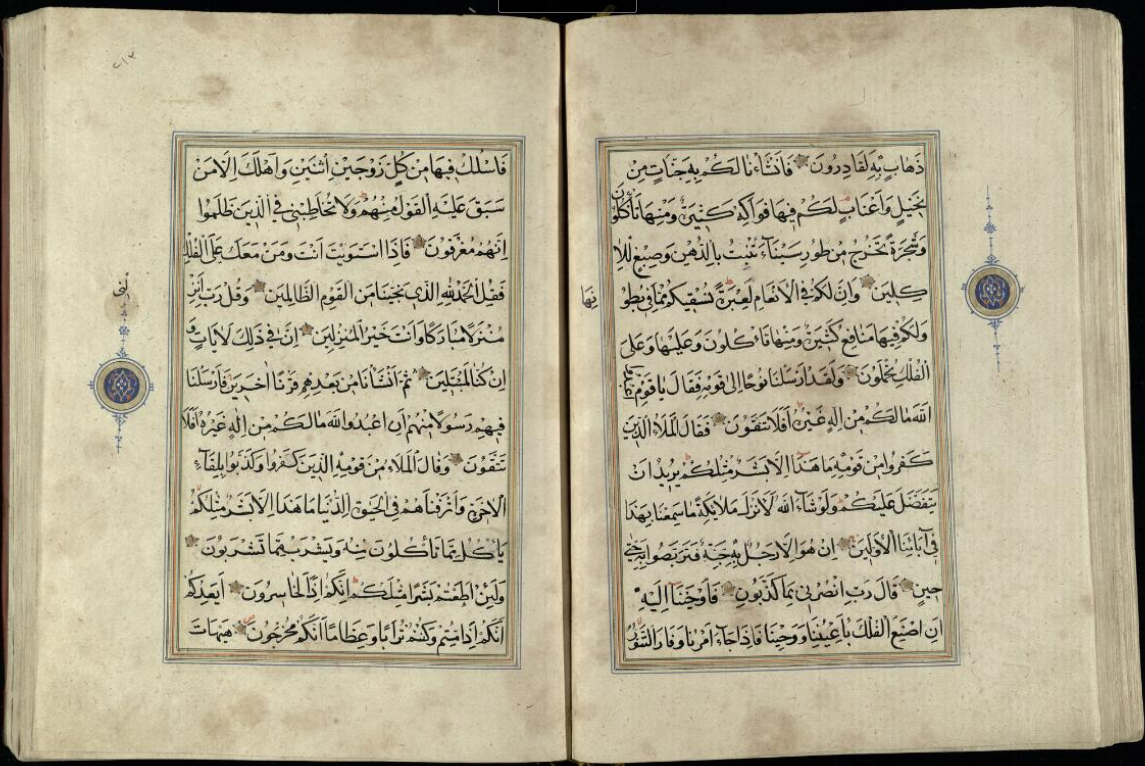 ذَهَابٍ بِهِ لَقَادِرُونَ فَأَنْشَأْنَا لَكُمْ بِهِ جَنَّاتٍ مِنْ
نَخِيلٍ وَأَعْنَابٍ لَكُمْ فِيهَا فَوَاكِهُ كَثِيرَةٌ وَمِنْهَا تَأْكُلُونَ
وَشَجَرَةً تَخْرُجُ مِنْ طُورِ سَيْنَاءَ تَنْبُتُ بِالدُّهْنِ وَصِبْغٍ لِلْآ
كِلِينَ وَإِنَّ لَكُمْ فِي الْأَنْعَامِ لَعِبْرَةً نُسْقِيكُمْ مِمَّا فِي بُطُو
نِهَا
وَلَكُمْ فِيهَا مَنَافِعُ كَثِيرَةٌ وَمِنْهَا تَأْكُلُونَ وَعَلَيْهَا وَعَلَى
الْفُلْكِ تُحْمَلُونَ وَلَقَدْ أَرْسَلْنَا نُوحًا إِلَى قَوْمِهِ فَقَالَ يَا قَوْمِ اعْبُدُوا
اللَّهَ مَا لَكُمْ مِنْ إِلَهٍ غَيْرُهُ أَفَلَا تَتَّقُونَ فَقَالَ الْمَلَأُ الَّذِينَ
كَفَرُوا مِنْ قَوْمِهِ مَا هَذَا إِلَّا بَشَرٌ مِثْلُكُمْ يُرِيدُ أَنْ
يَتَفَضَّلَ عَلَيْكُمْ وَلَوْ شَاءَ اللَّهُ لَأَنْزَلَ مَلَائِكَةً مَا سَمِعْنَا بِهَذَا
فِي آبَائِنَا الْأَوَّلِينَ إِنْ هُوَ إِلَّا رَجُلٌ بِهِ جِنَّةٌ فَتَرَبَّصُوا بِهِ حَتَّى
حِينٍ قَالَ رَبِّ انْصُرْنِي بِمَا كَذَّبُونِ فَأَوْحَيْنَا إِلَيْهِ
أَنِ اصْنَعِ الْفُلْكَ بِأَعْيُنِنَا وَوَحْيِنَا فَإِذَا جَاءَ أَمْرُنَا وَفَارَ التَّنُّورُ
٢١٣
فَاسْلُكْ فِيهَا مِنْ كُلٍّ زَوْجَيْنِ اثْنَيْنِ وَأَهْلَكَ إِلَّا مَنْ
سَبَقَ عَلَيْهِ الْقَوْلُ مِنْهُمْ وَلَا تُخَاطِبْنِي فِي الَّذِينَ ظَلَمُوا
إِنَّهُمْ مُغْرَقُونَ فَإِذَا اسْتَوَيْتَ أَنْتَ وَمَنْ مَعَكَ عَلَى الْفُلْكِ
فَقُلِ الْحَمْدُ لِلَّهِ الَّذِي نَجَّانَا مِنَ الْقَوْمِ الظَّالِمِينَ وَقُلْ رَبِّ أَنْزِ
لْنِي
مُنْزَلًا مُبَارَكًا وَأَنْتَ خَيْرُ الْمُنْزِلِينَ إِنَّ فِي ذَلِكَ لَآيَاتٍ وَ
إِنْ كُنَّا لَمُبْتَلِينَ ثُمَّ أَنْشَأْنَا مِنْ بَعْدِهِمْ قَرْنًا آخَرِينَ فَأَرْسَلْنَا
فِيهِمْ رَسُولًا مِنْهُمْ أَنِ اعْبُدُوا اللَّهَ مَا لَكُمْ مِنْ إِلَهٍ غَيْرُهُ أَفَلَا
تَتَّقُونَ وَقَالَ الْمَلَأُ مِنْ قَوْمِهِ الَّذِينَ كَفَرُوا وَكَذَّبُوا بِلِقَاءِ
الْآخِرَةِ وَأَتْرَفْنَاهُمْ فِي الْحَيٰوةِ الدُّنْيَا مَا هَذَا إِلَّا بَشَرٌ مِثْلُكُمْ
يَأْكُلُ مِمَّا تَأْكُلُونَ مِنْهُ وَيَشْرَبُ مِمَّا تَشْرَبُونَ
وَلَئِنْ أَطَعْتُمْ بَشَرًا مِثْلَكُمْ إِنَّكُمْ إِذًا لَخَاسِرُونَ أَيَعِدُكُمْ
أَنَّكُمْ إِذَا مِتُّمْ وَكُنْتُمْ تُرَابًا وَعِظَامًا أَنَّكُمْ مُخْرَجُونَ هَيْهَاتَ